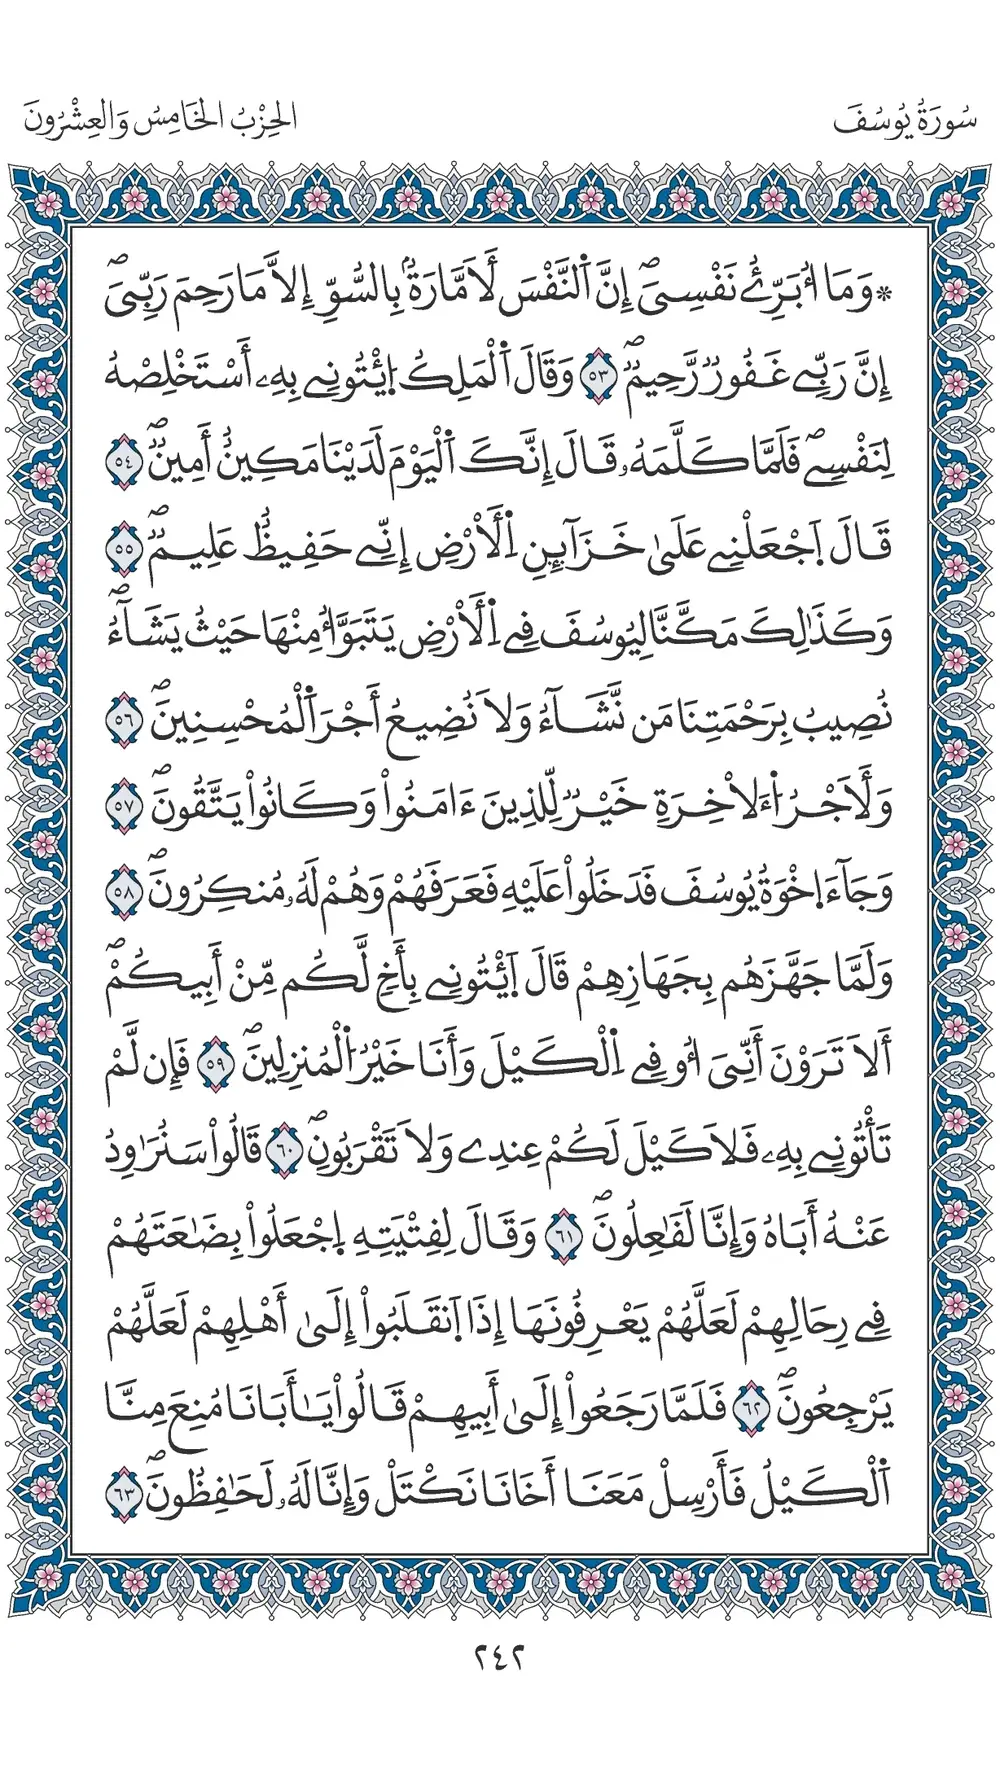 سُورَةُ يُوسُفَ
الحِزْبُ الخَامِسُ وَالعِشْرُونَ
* وَمَا أُبَرِّئُ نَفْسِىَ إِنَّ اَ۬لنَّفْسَ لَأَمَّارَةُۢ بِالسُّوِّ إِلاَّ مَا رَحِمَ رَبِّىَ
إِنَّ رَبِّے غَفُورٌ رَّحِيمٌ ٥٣ وَقَالَ اَ۬لْمَلِكُ اُ۪ئْتُونِے بِهِۦ أَسْتَخْلِصْهُ
لِنَفْسِے فَلَمَّا كَلَّمَهُۥ قَالَ إِنَّكَ اَ۬لْيَوْمَ لَدَيْنَا مَكِينٌ أَمِينٌ ٥٤
قَالَ اَ۪جْعَلْنِے عَلَىٰ خَزَآئِنِ اِ۬لْأَرْضِ إِنِّے حَفِيظٌ عَلِيمٌ ٥٥
وَكَذَٰلِكَ مَكَّنَّا لِيُوسُفَ فِے اِ۬لْأَرْضِ يَتَبَوَّأُ مِنْهَا حَيْثُ يَشَآءُ
نُصِيبُ بِرَحْمَتِنَا مَن نَّشَآءُ وَلَا نُضِيعُ أَجْرَ اَ۬لْمُحْسِنِينَ ٥٦
وَلَأَجْرُ اُ۬لَأخِرَةِ خَيْرٌ لِّلذِينَ ءَامَنُواْ وَكَانُواْ يَتَّقُونَ ٥٧
وَجَآءَ اِخْوَةُ يُوسُفَ فَدَخَلُواْ عَلَيْهِ فَعَرَفَهُمْ وَهُمْ لَهُۥ مُنكِرُونَ ٥٨
وَلَمَّا جَهَّزَهُم بِجَهَازِهِمْ قَالَ اَ۪ئْتُونِے بِأَخٍ لَّكُم مِّنْ أَبِيكُمْ
أَلَا تَرَوْنَ أَنِّىَ أُوفِے اِ۬لْكَيْلَ وَأَنَا خَيْرُ اُ۬لْمُنزِلِينَ ٥٩ فَإِن لَّمْ
تَأْتُونِے بِهِۦ فَلَا كَيْلَ لَكُمْ عِندِے وَلَا تَقْرَبُونِ ٦٠ قَالُواْ سَنُرَٰوِدُ
عَنْهُ أَبَاهُ وَإِنَّا لَفَٰعِلُونَ ٦١ وَقَالَ لِفِتْيَتِهِ اِ۪جْعَلُواْ بِضَٰعَتَهُمْ
فِے رِحَالِهِمْ لَعَلَّهُمْ يَعْرِفُونَهَا إِذَا اَ۪نقَلَبُواْ إِلَىٰ أَهْلِهِمْ لَعَلَّهُمْ
يَرْجِعُونَ ٦٢ فَلَمَّا رَجَعُواْ إِلَىٰ أَبِيهِمْ قَالُواْ يَٰأَبَانَا مُنِعَ مِنَّا
اَ۬لْكَيْلُ فَأَرْسِلْ مَعَنَا أَخَانَا نَكْتَلْ وَإِنَّا لَهُۥ لَحَٰفِظُونَ ٦٣
٢٤٢